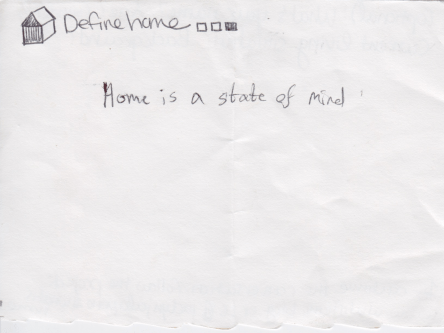 Define home
Home is a state of mind